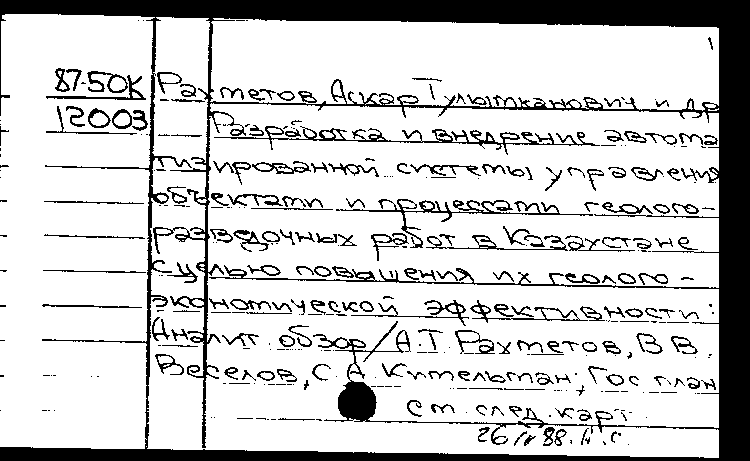 1
87-50К Рахметов, Аскар Тулымханович и др
12003 Разработка и внедрение автома
тизированной системы управления
объектами и процессами геолого-
разведочных работ в Казахстане
с целью повышения их геолого-
экономической эффективности:
Аналит. обзор / А.Т Рахметов, В В.
Веселов, С А Кительман; Гос план
см. след. карт
26 IV 88.